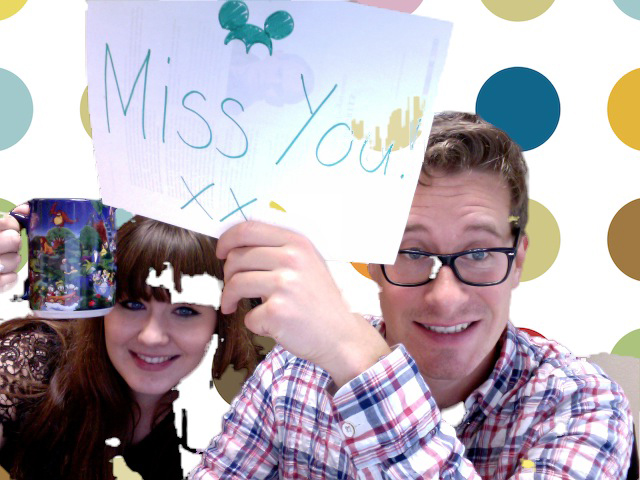 Miss You!
xx